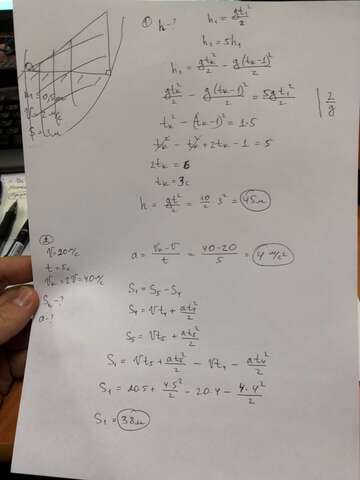 ① h-?
h₁ = gt₁²/2
h₂ = 5h₁
h₂ = gtₖ²/2 - g(tₖ-1)²/2
gtₖ²/2 - g(tₖ-1)²/2 = 5gt₁²/2 | 2/g
tₖ² - (tₖ-1)² = 1·5
tₖ² - tₖ² + 2tₖ - 1 = 5
2tₖ = 6
tₖ = 3с
h = gt²/2 = 10/2 3² = 45м
S = 3м
②
V=20м/с
t = 5с
Vₖ=2V=40м/с
a-?
a = (Vₖ-V)/t = (40-20)/5 = 4 м/с²
S₁ = S₅ - S₄
S₄ = Vt₄ + at₄²/2
S₅ = Vt₅ + at₅²/2
S₁ = Vt₅ + at₅²/2 - Vt₄ - at₄²/2
S₁ = 20·5 + 4·5²/2 - 20·4 - 4·4²/2
S₁ = 38м